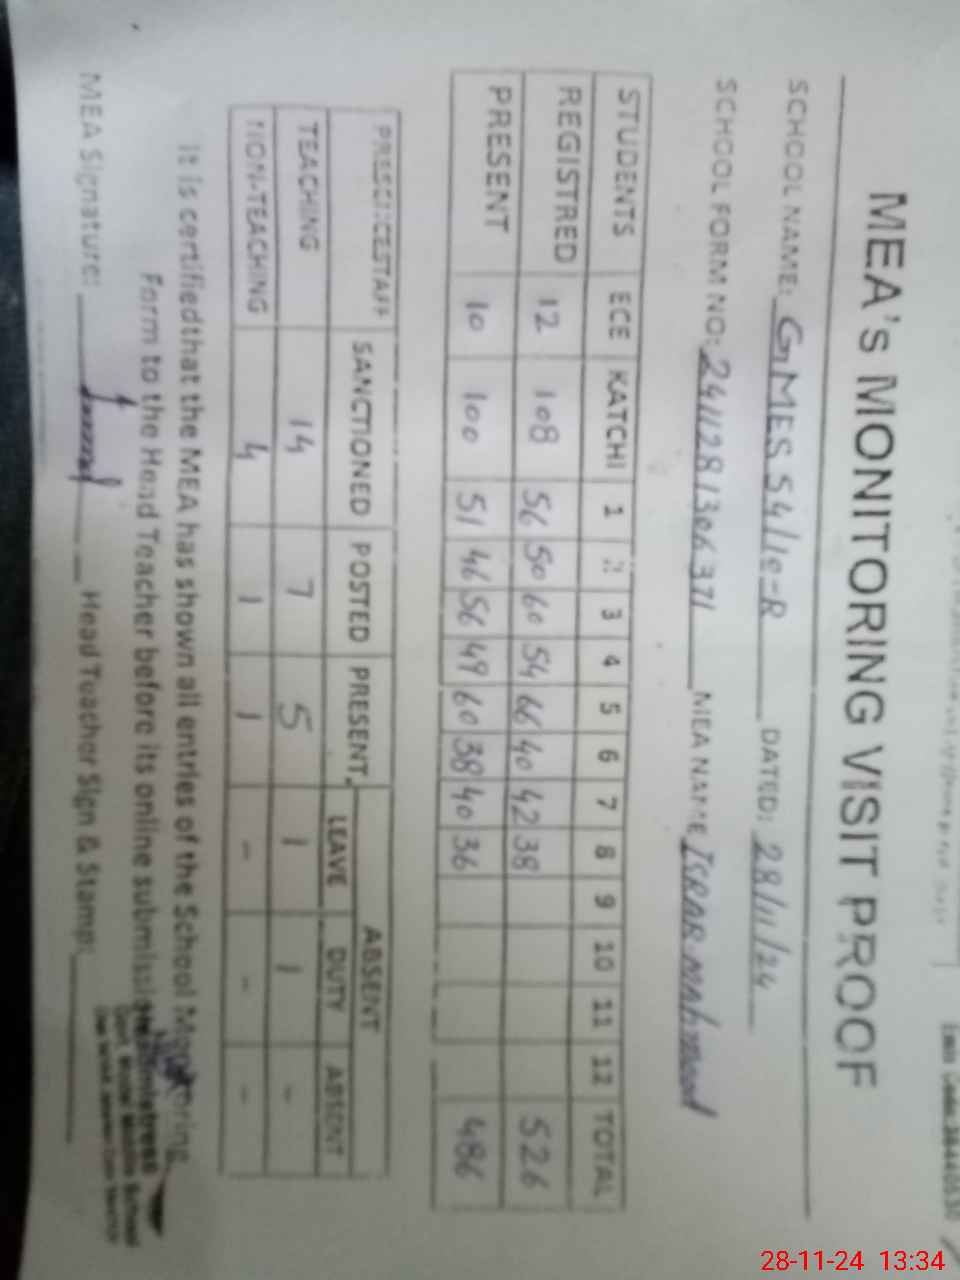 MEA's MONITORING VISIT PROOF
SCHOOL NAME: GMES 54/10-R DATED: 28/11/24
SCHOOL FORM NO: 2411281306371 MEA NAME ISRAR MAhmood
STUDENTS ECE KATCHI 1 2 3 4 5 6 7 8 9 10 11 12 TOTAL
REGISTRED 12 108 56 50 60 54 66 40 42 38 526
PRESENT 10 100 51 46 56 49 60 38 40 36 486
PRESENCESTAFF SANCTIONED POSTED PRESENT ABSENT
LEAVE DUTY ABSENT
TEACHING 14 7 5 1 1 -
NON-TEACHING 4 1 1 - - -
It is certifiedthat the MEA has shown all entries of the School Monitoring
Form to the Head Teacher before its online submission
MEA Signature: Head Teacher Sign & Stamp:
Headmistress
Govt. Model Middle School
28-11-24 13:34